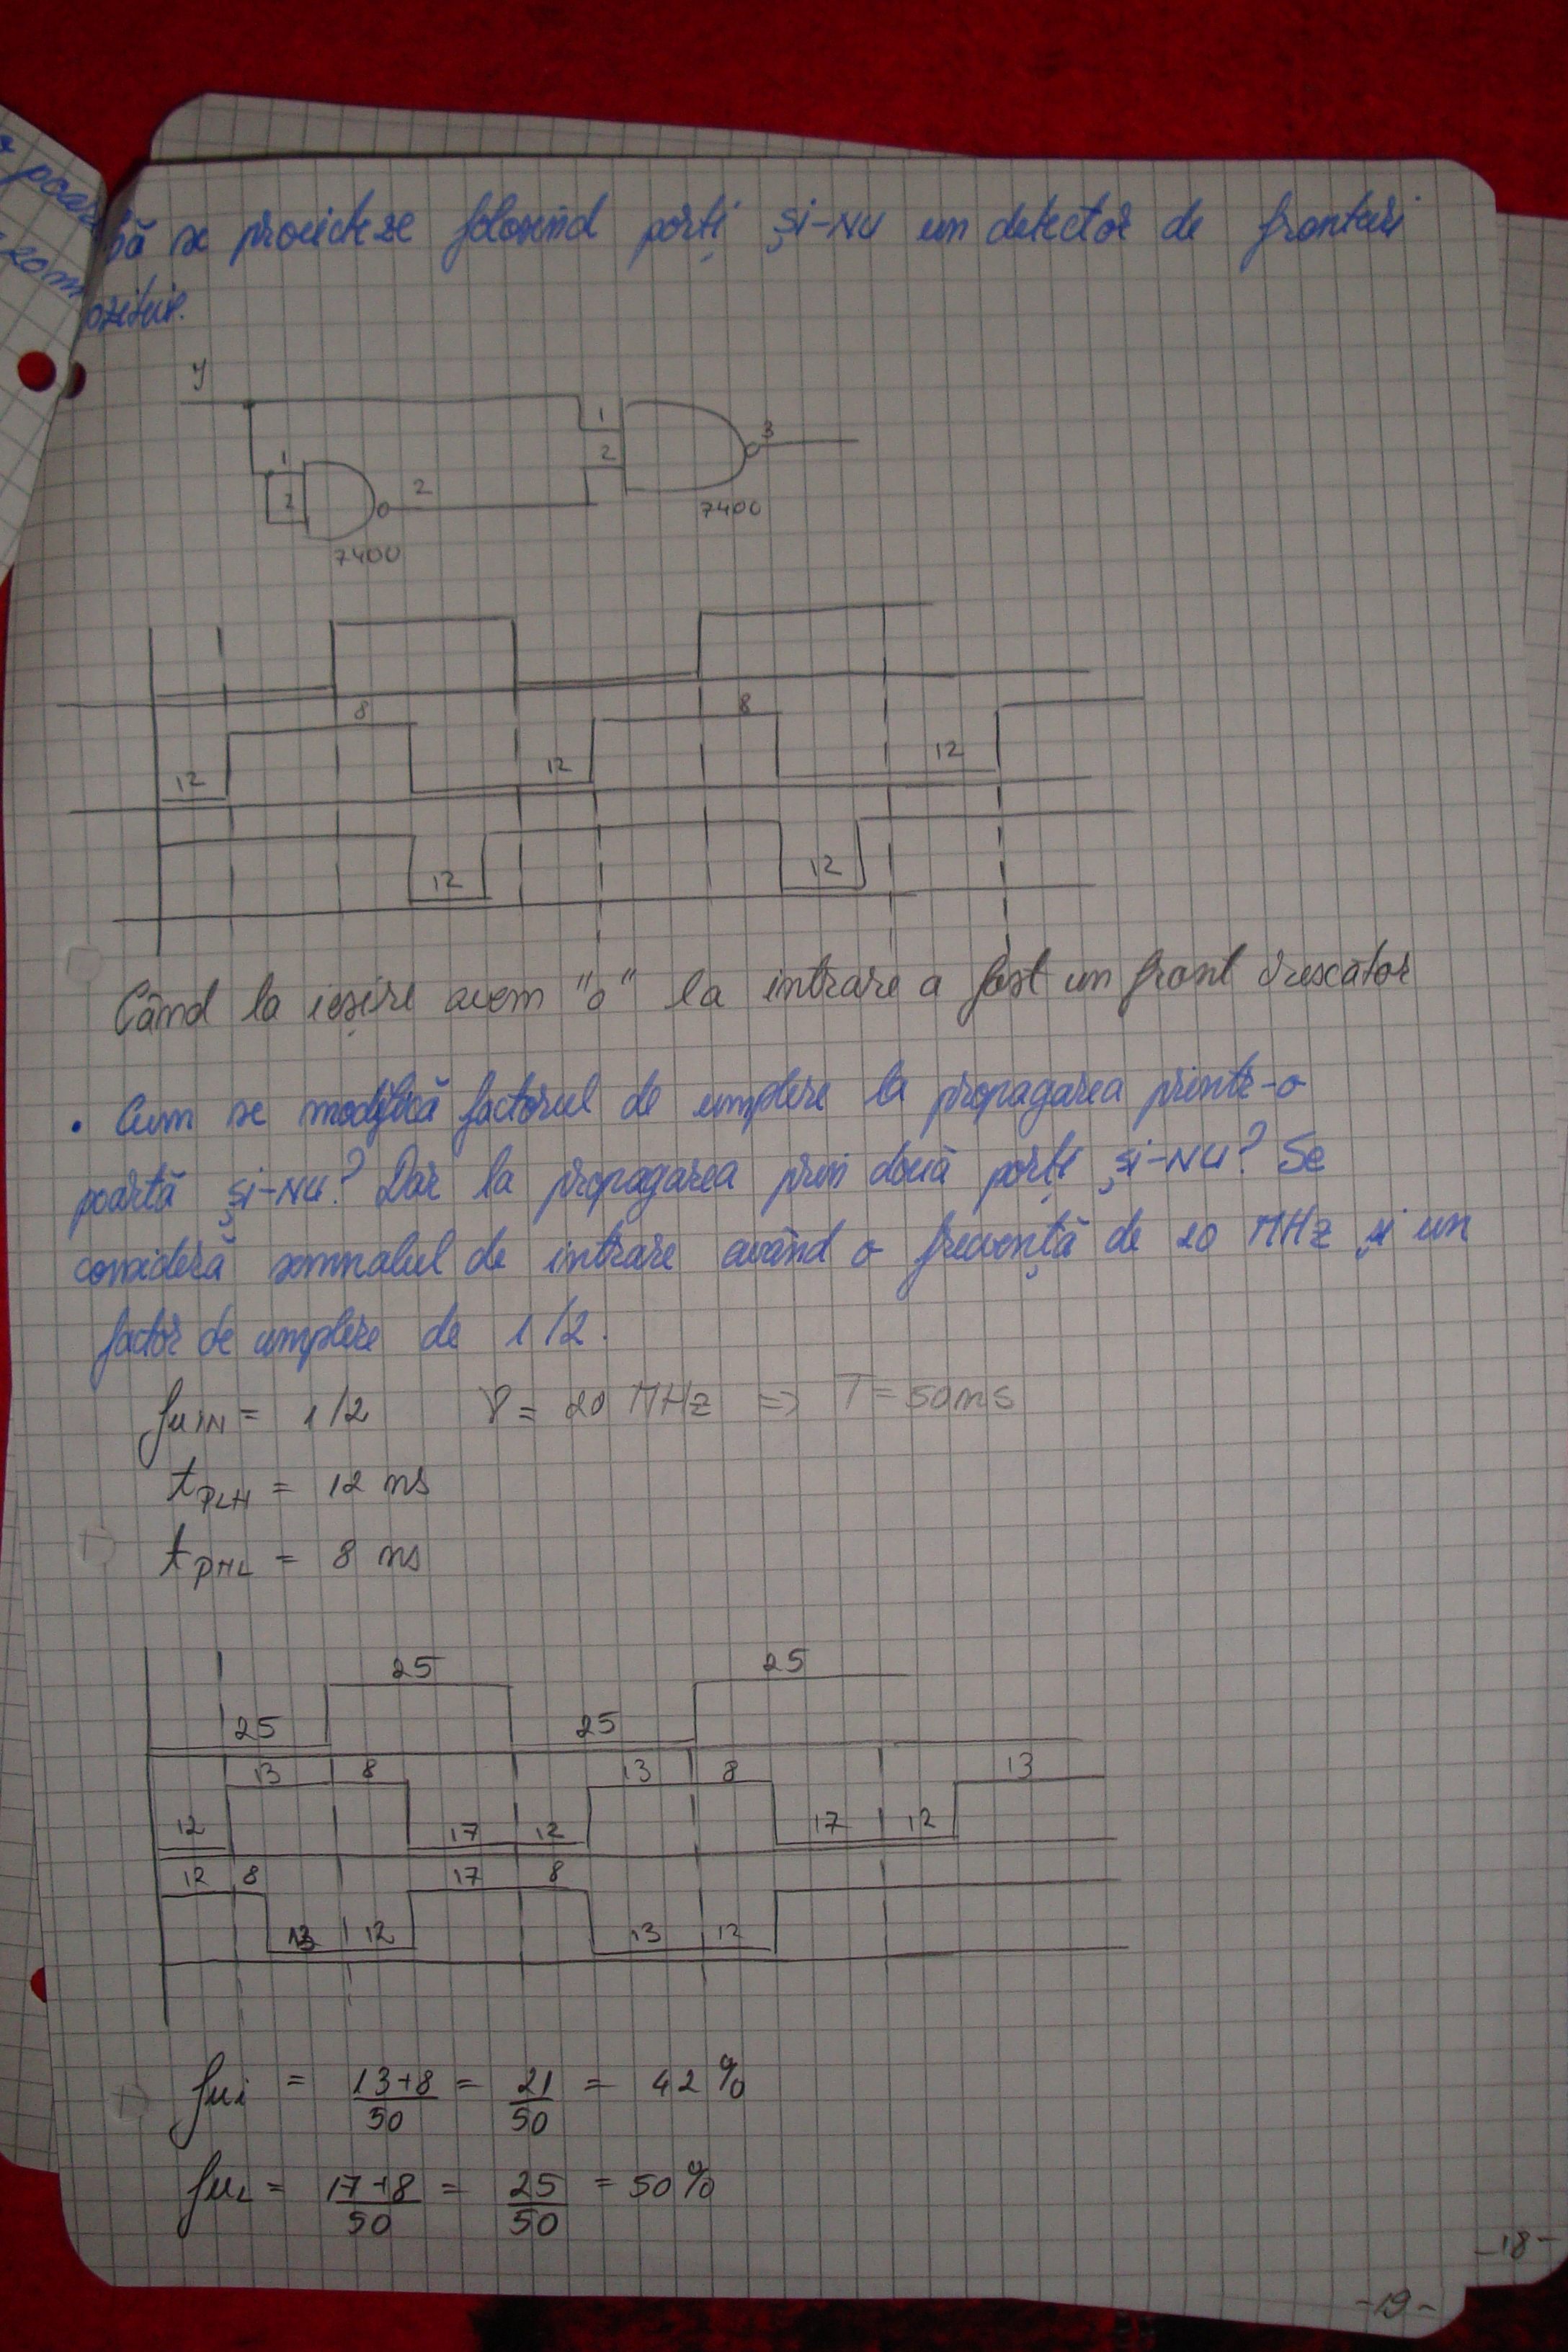 să se proiecteze folosind porți și-NU un detector de fronturi
pozitive.
y
1
2
3
7400
1
2
2
7400
8
8
12
12
12
12
12
Când la ieșire avem "0" la intrare a fost un front crescător
• Cum se modifică factorul de umplere la propagarea printr-o
poartă și-NU? Dar la propagarea prin două porți și-NU? Se
consideră semnalul de intrare având o frecvență de 20 MHz și un
factor de umplere de 1/2.
fuIN = 1/2 γ = 20 MHz => T = 50ns
tPLH = 12 ns
tPHL = 8 ns
25 25
25 25
13 8 13 8 13
12 17 12 17 12
12 8 17 8
13 12 13 12
fu1 = 13+8/50 = 21/50 = 42%
fu2 = 17+8/50 = 25/50 = 50%
-18-
-19-